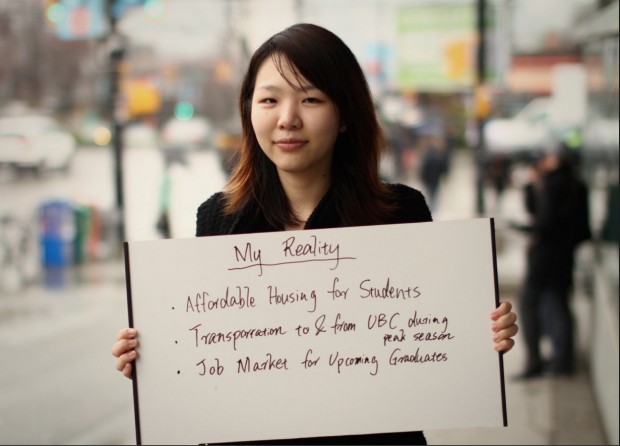 My Reality
· Affordable Housing for Students
· Transporration to & from UBC during
peak season
· Job Market for Upcoming Graduates